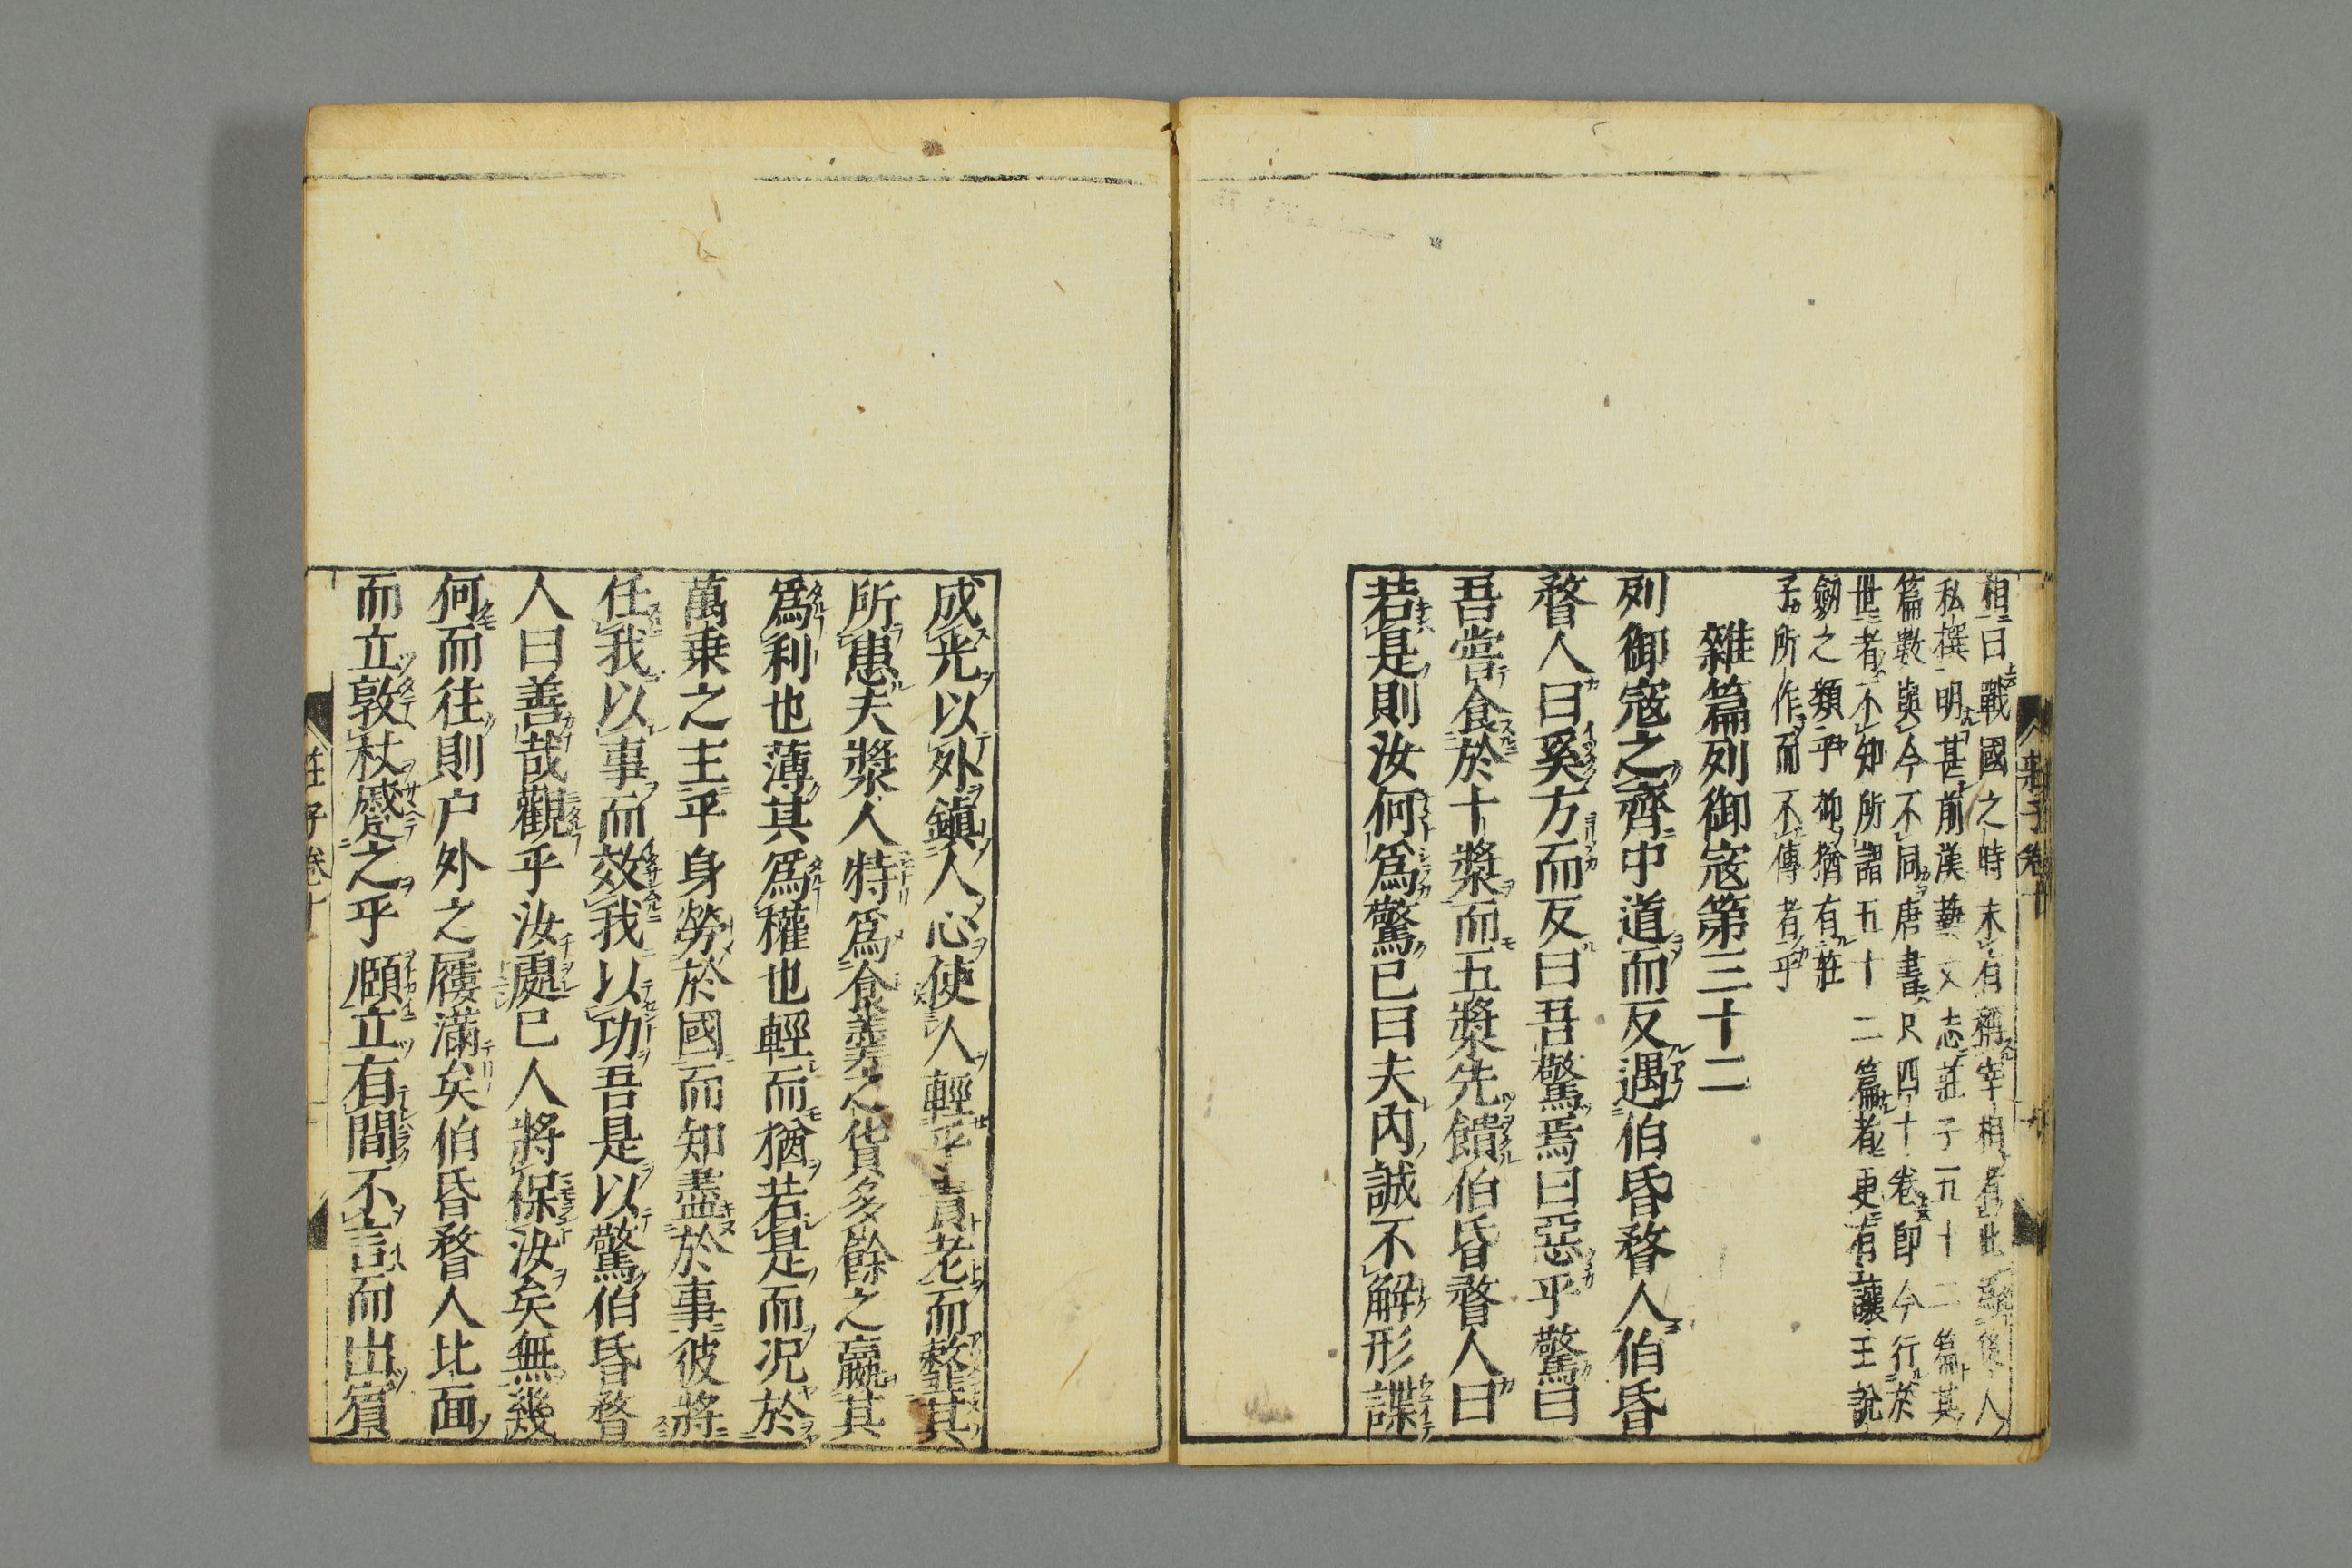 相曰戰國之時未有稱宰相者此爲後人
私撰明甚前漢藝文志莊子五十二篇其
篇數與今不同唐書只四十卷即今行於
世者不知所謂五十二篇者更有讓王說
劒之類乎抑猶有莊
子所作而不傳者乎
雜篇列御寇第三十二
列御寇之齊中道而反遇伯昏瞀人伯昏
瞀人曰奚方而反曰吾驚焉曰惡乎驚曰
吾嘗食於十漿而五漿先饋伯昏瞀人曰
若是則汝何爲驚已曰夫内誠不解形諜
成光以外鎭人心使人輕乎貴老而韲其
所患夫漿人特爲食羹之貨多餘之贏其
爲利也薄其爲權也輕而猶若是而況於
萬乗之主乎身勞於國而知盡於事彼將
任我以事而效我以功吾是以驚伯昏瞀
人曰善哉觀乎汝處已人將保汝矣無幾
何而往則户外之屨滿矣伯昏瞀人北面
而立敦杖蹙之乎頤立有間不言而出賓
莊子卷十